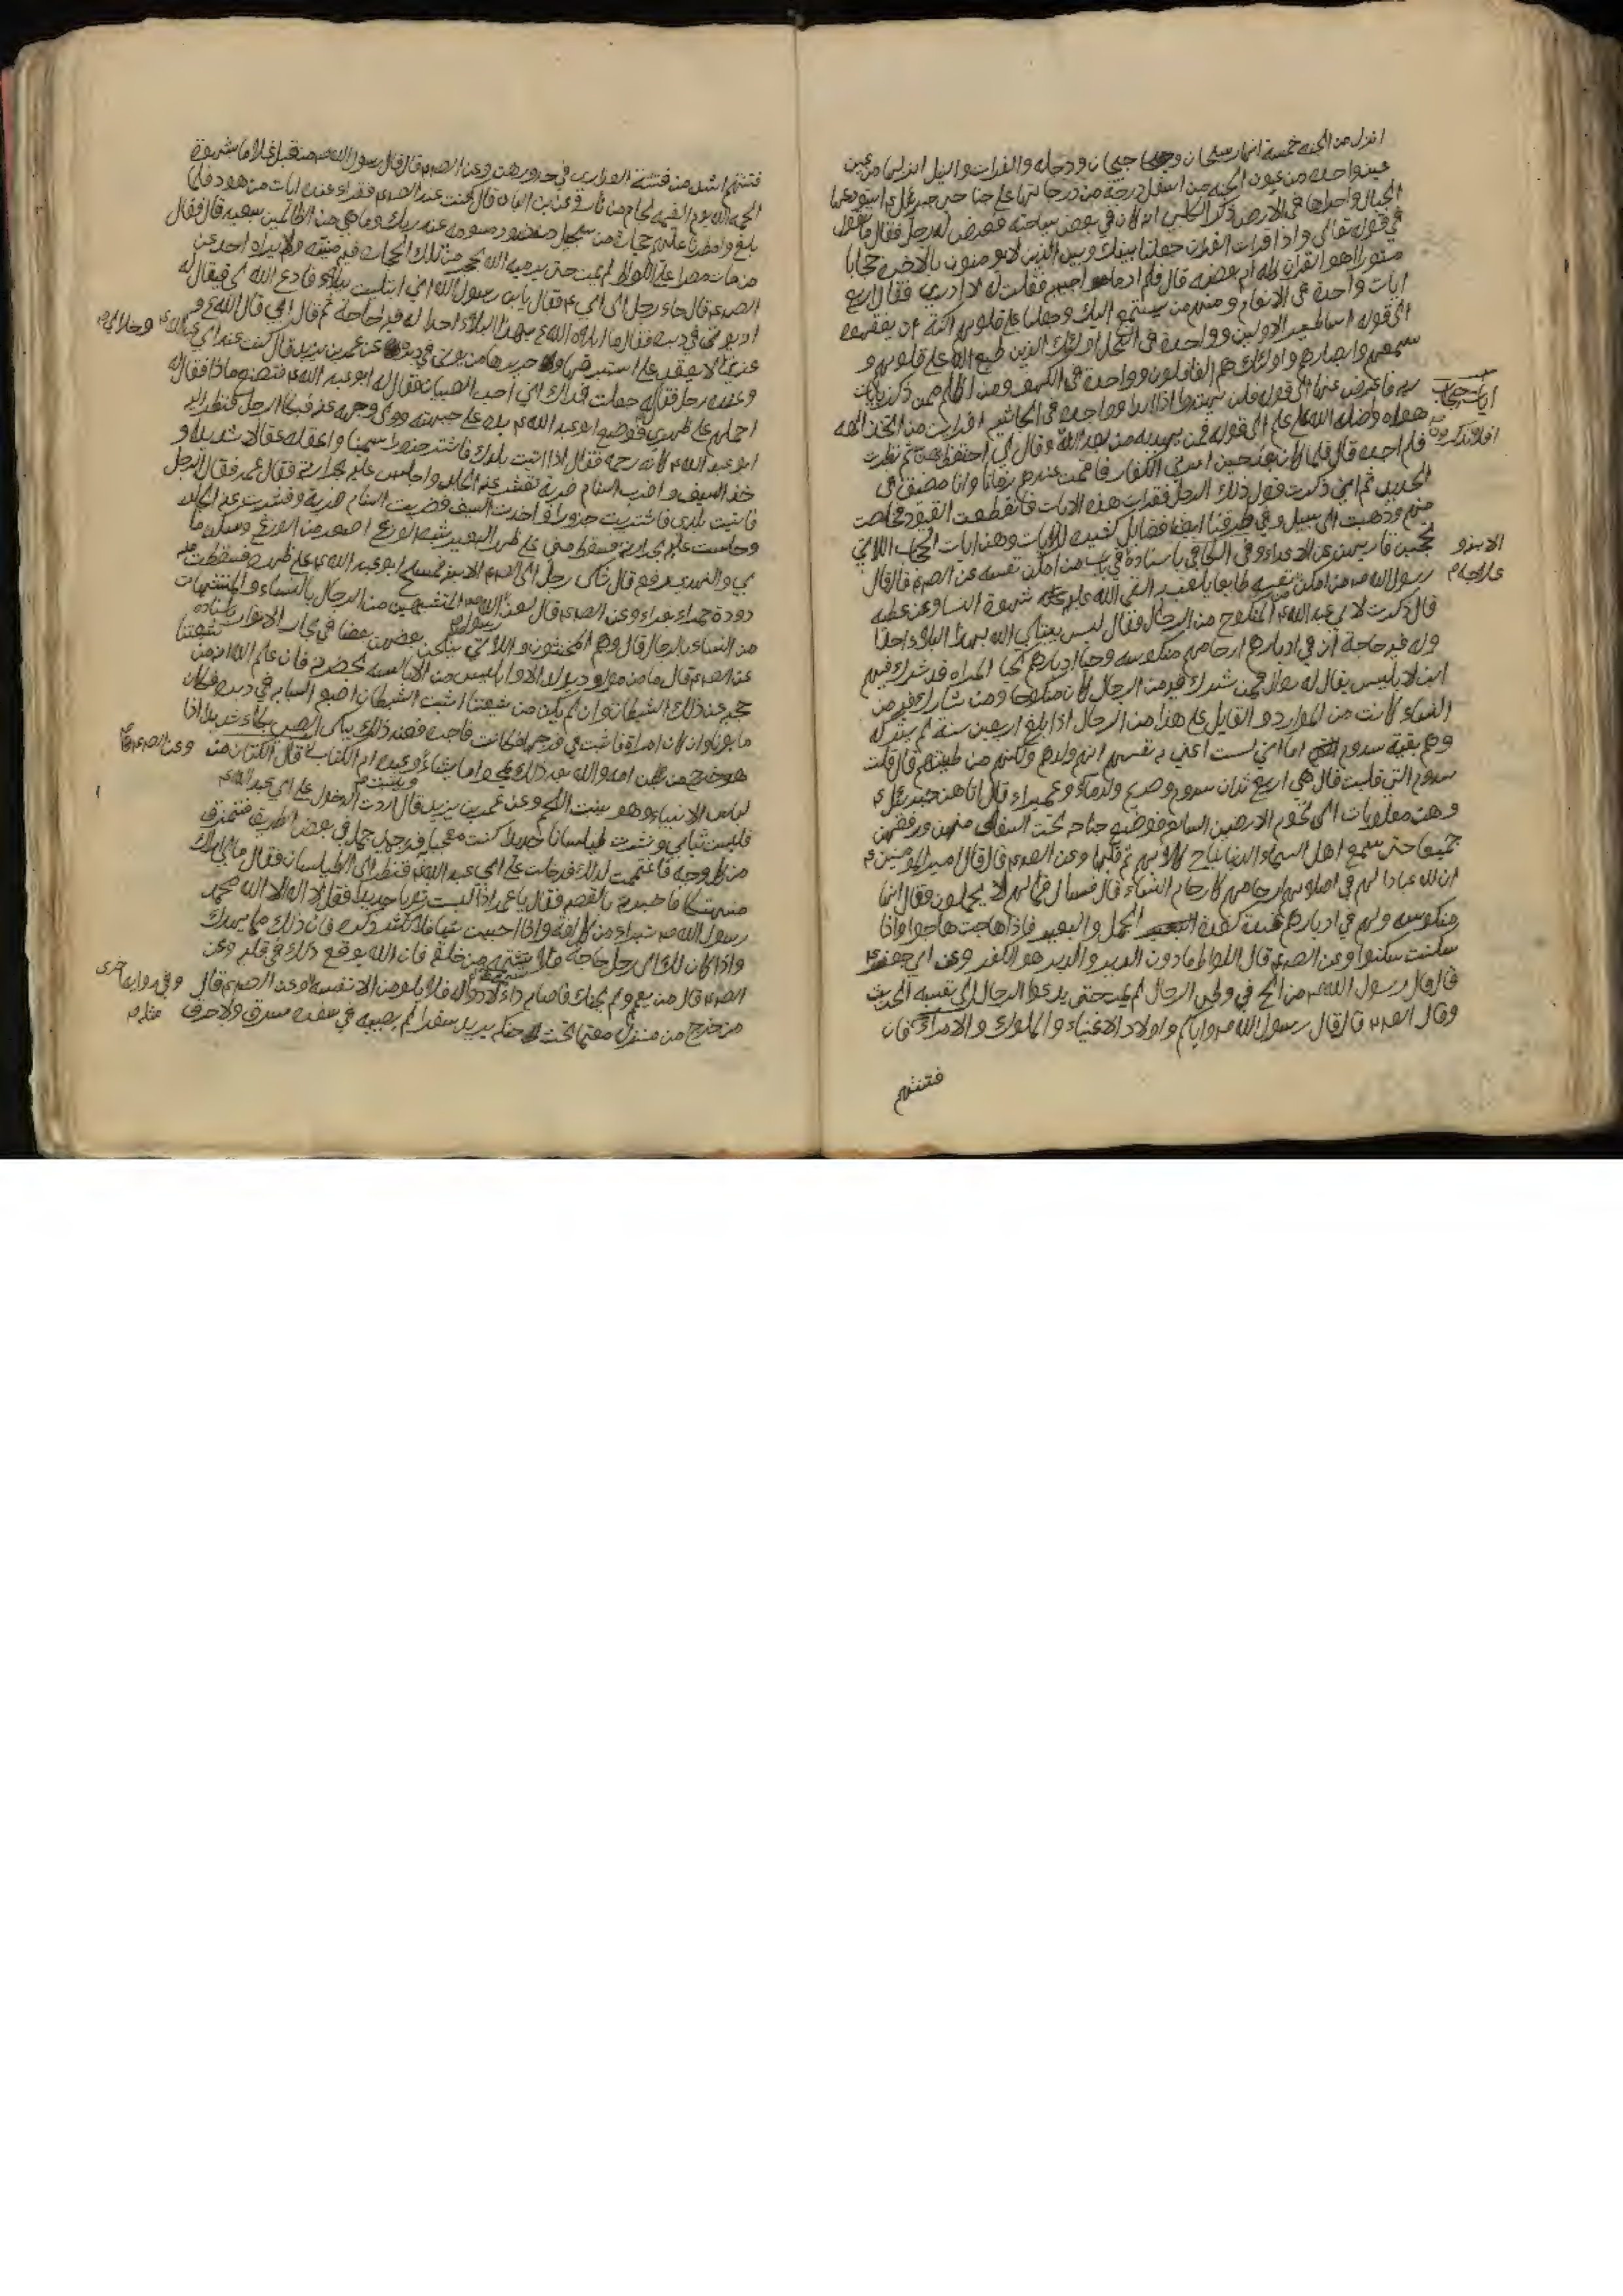 انزل من الجنة خمسة انهار سيحان وجيحان ودجلة والفرات والنيل انزلها من عين
عين واحدة من عيون الجنة من اسفل درجة من درجاتها على جناحي جبرئيل ع استودعها
الجبال واجراها في الارض ذكر الكلبي انه كان في بعض سياحته فعرض له رجل فقال ما تقول
في قوله تعالى واذا قرات القران جعلنا بينك وبين الذين لا يومنون بالاخرة حجابا
مستورا اهو القران كله ام بعضه قال فلم ادر ما اجيبه فقلت له لا ادري فقال اربع
ايات واحدة في الانعام ومنهم من يستمع اليك وجعلنا على قلوبهم اكنة ان يفقهوه
الى قوله اساطير الاولين وواحدة في النحل اولئك الذين طبع الله على قلوبهم و
سمعهم وابصارهم واولئك هم الغافلون وواحدة في الكهف ومن اظلم ممن ذكر بايات
ربه فاعرض عنها الى قوله فلن يهتدوا اذا ابدا وواحدة في الجاثية افرايت من اتخذ الهه
هواه واضله الله على علم الى قوله فمن يهديه من بعد الله وقال لي احتفظ ثم نظرت
ايات حجاب
افلا تذكرون
فلم اجده قال فلما كان حين اسرني الكفار فاقمت عندهم زمانا وانا مضيق في
الحديد ثم اني ذكرت قول ذلك الرجل فقرات هذه الايات فانقطعت القيود فخلصت
منهم وذهبت الى سبيلي وفي طرقنا ايضا فضايل كثيرة للايات وهذه ايات الحجاب اللاتي
تحجبن قاريهن عن الاعداء وفي الكافي باسناده في باب من امكن نفسه عن الصدم قال قال
رسول الله ص من امكن من نفسه طايعا يلعب به القى الله عليه شهوة النسا وعن عطيه
الابنة و
علاجها م
قال ذكرت لابي عبد الله ع المنكوح من الرجال فقال ليس يبتلي الله بهذا البلاء احدا
وله فيه حاجة ان في ادبارهم ارحاما منكوسه وحيا ادبارهم كحيا المراه قد شرك فيهم
ابن لابليس يقال له زوال فمن شرك فيه من الرجال كان منكوحا ومن شارك فيه من
النساء كانت من الموارد والعامل على هذا من الرجال اذا بلغ اربعين سنة لم يتركه
وهم بقية سدوم اما اني لست اعني به نفسهم انهم ولدهم ولكنهم من طينتهم قال قلت
سدوم التي قلبت قال هي اربع مدن سدوم وصريم ولدماء وعميراء قال اتاهن جبرئيل ع
وهن مقلوبات الى تخوم الارضين السابعه فوضع جناحه تحت السفلى منهن ورفعهن
جميعا حتى سمع اهل السماء الدنيا نباح كلابهم ثم قلبها وعن الصدم قال قال امير المومنين ع
ان لله عبادا لهم في اصلابهم ارحام كارحام النساء قال فسال فما لهم لا يحملون فقال انها
منكوسه ولهم في ادبارهم غدة كغدة الجمل والبعير فاذا هاجت هاجوا واذا
سكنت سكنوا وعن الصدم قال اللواط ما دون الدبر والدبر هو الكفر وعن ابي جعفر ع
قال قال رسول الله ص من الح في وطي الرجال لم يمت حتى يدعوا الرجال الى نفسه الحديث
وقال الصدم قال قال رسول الله ص واياكم واولاد الاغنياء والملوك والامراء فان
فتنتهم
فتنتهم اشد من فتنة العذارى في خدورهن وعن الصدم قال قال رسول الله ص من قبل غلاما بشهوة
الجمه الله يوم القيمة لجام من نار وعن ابن ابان قال كنت عند الصدم فقراء عنده ايات من هود فلما
بلغ وامطرنا عليهم حجارة من سجيل منضود مسومة عند ربك وما هي من الظالمين ببعيد قال فقال
من مات مصرا على اللواط لم يمت حتى يرميه الله بحجر من تلك الحجارة فيه منيته ولا يراه احد عن
الصدم قال جاء رجل الى ابي ع فقال يابن رسول الله اني ابتليت ببلاء فادع الله لي فقيل له
انه يوتى في دبره فقال ما ابلى الله ع بهذا البلاء احدا له فيه حاجة ثم قال ابي قال الله ع و
عزتي لا يقعد على استبرقها و حريرها من يوتى في دبره عن عمر بن يزيد قال كنت عند ابي عبد الله ع
وجلالي م
وعنده رجل فقال له جعلت فداك اني احب الصبيان فقال له ابو عبد الله ع فتصنع ماذا فقال له
احملهم على ظهري فوضع ابو عبد الله ع يده على جبهته وولى وجهه عنه فبكا الرجل فنظر اليه
ابو عبد الله ع كانه رحمه فقال اذا اتيت بلدك فاشتر جزورا سمينا واعقله عقالا شديدا و
خذ السيف واضرب السنام ضربة تقشر عنه الجلد واجلس عليه بحرارته فقال عمر فقال الرجل
فاتيت بلدي فاشتريت جزورا واخذت السيف فضربت السنام ضربة وقشرت عنه الجلد
وجلست عليه بحرارته فسقط مني على ظهر البعير شبه الوزغ اصغر من الوزغ وسكن ما
بي والنهدي رفعه قال شكى رجل الى الصدم الابنة فمسح ابو عبد الله ع على ظهره فسقطت منه
دودة حمراء فبراء وعن الصدم قال لعن رسول الله ص المتشبهين من الرجال بالنساء والمتشبهات
من النساء بالرجال قال وهم المخنثون واللاتي ينكحن بعضهن بعضا في بحار الانوار باسناده
عن الصدم قال ما من مولود يولد الا وابليس من الابالسه بحضرته فان علم الله انه من شيعتنا
حجبه عن ذلك الشيطان وان لم يكن من شيعتنا اثبت الشيطان اصبعه السبابه في دبره فكان
مابونا وان كان امراة اثبت في فرجها فكانت فاجرة فعند ذلك يبكي الصبي بكاء شديدا اذا
هو خرج من بطن امه والله بعد ذلك يمحو ما يشاء ويثبت وعنده ام الكتاب قال الكتان من
وعن الصدم قال
لباس الانبياء وهو ينبت اللحم وعن عمر بن يزيد قال اردت الدخول على ابي عبد الله ع
فلبست ثيابي ونشرت طيلسانا جديدا كنت معجبا به فزحمني جمل في بعض الطريق فتمزق
من كل وجه فاغتممت لذلك فدخلت على ابي عبد الله ع فنظر الى الطيلسان فقال ما لي اراك
منهتكا فاخبرته بالقصه فقال يا عمر اذا لبست ثوبا جديدا فقل لا اله الا الله محمد
رسول الله ص تبراء من كل افة واذا احببت شيئا فلا تكثر ذكره فان ذلك مما يهدك
واذا كان لك الى رجل حاجة فلا تشتمه من خلفه فان الله يوقع ذلك في قلبه وعن
الصدم قال من تعمم ولم يحنك فاصابه داء لا دواء له فلا يلومن الا نفسه وعن الصدم قال
وفي رواية اخرى
من خرج من منزله معتما تحت حنكه يريد سفرا لم يصبه في سفره سرق ولا حرق
مثله م